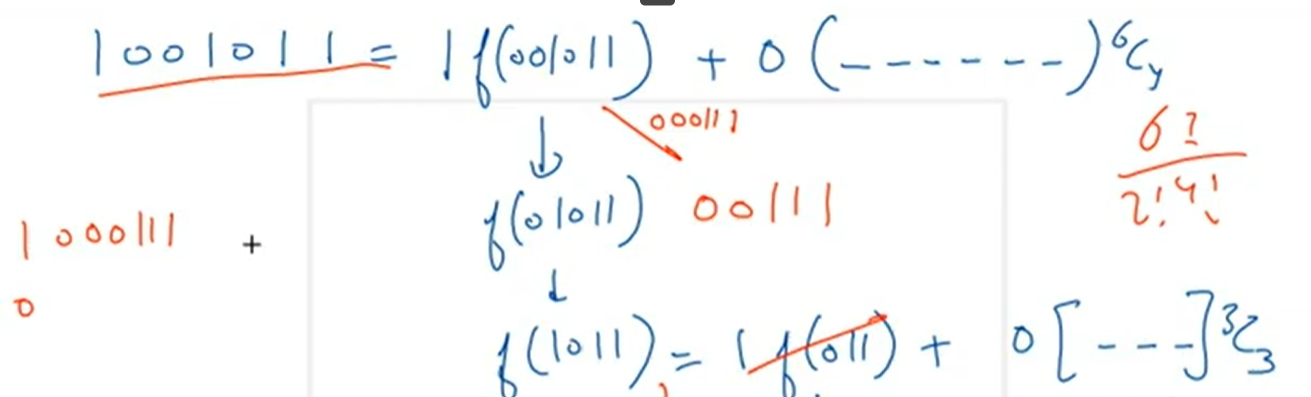 1001011 = 1 f(001011) + 0 (------) ⁶C₄
000111
6!
2! 4!
f(01011) 00111
1 000111 +
0
f(1011) = 1 f(011) + 0 [---] ³C₃